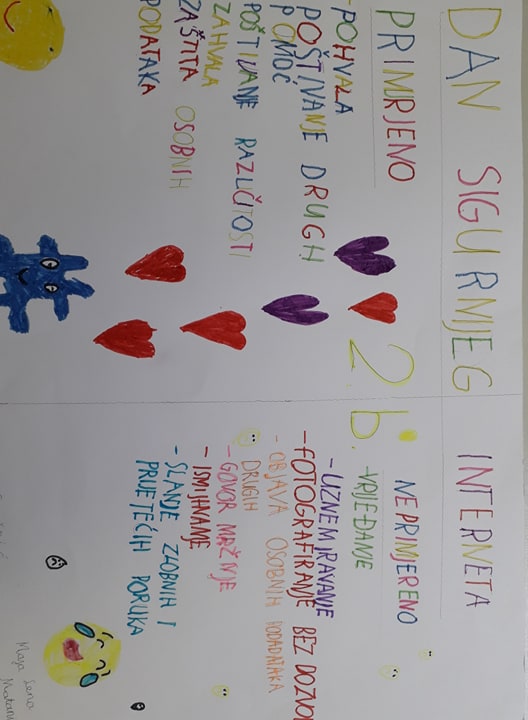 DAN SIGURNIJEG INTERNETA
PRIMJRJENO
-POHVALA
POŠTIVANJE DRUGIH
POMOĆ
POŠTIVANJE RAZLIČITOSTI
ZAHVALA
ZAŠTITA OSOBNIH
PODATAKA
2. b.
NEPRIMJERENO
-VRIJEĐANJE
-UZNEMIRAVANJE
-FOTOGRAFIRANJE BEZ
- OBJAVA OSOBNIH PODATAKA
DRUGIH
-GOVOR MRŽNJE
- ISMIJAVANJE
- SLANJE ZLOBNIH I
PRIJETEĆIH PORUKA
Maja Lena